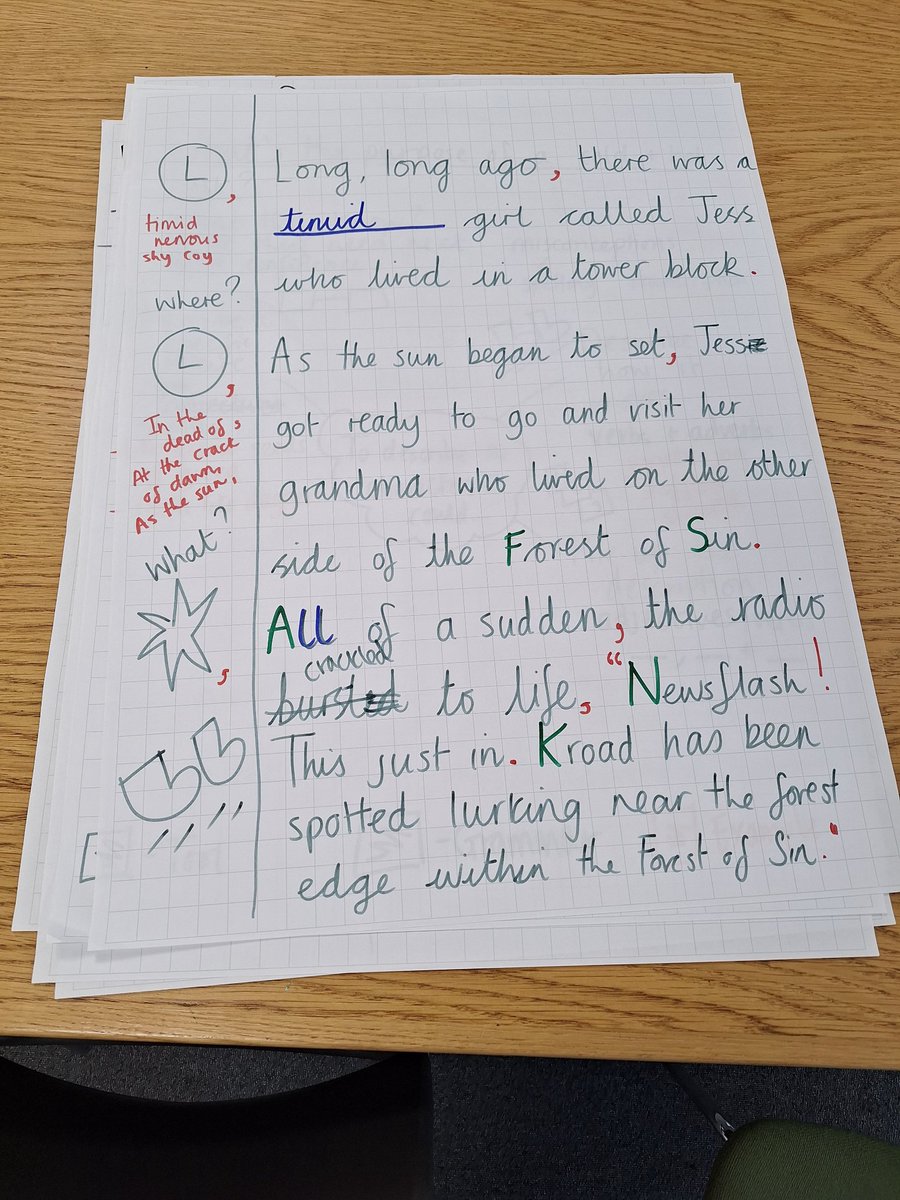 Long, long ago, there was a
timid girl called Jess
who lived in a tower block.
As the sun began to set, Jess
got ready to go and visit her
grandma who lived on the other
side of the Forest of Sin.
All of a sudden, the radio
crackled
burst to life, "Newsflash!
This just in. Kroad has been
spotted lurking near the forest
edge within the Forest of Sin."
L,
timid
nervous
shy coy
where?
L,
In the
dead of,
At the crack
of dawn,
As the sun,
What?
,